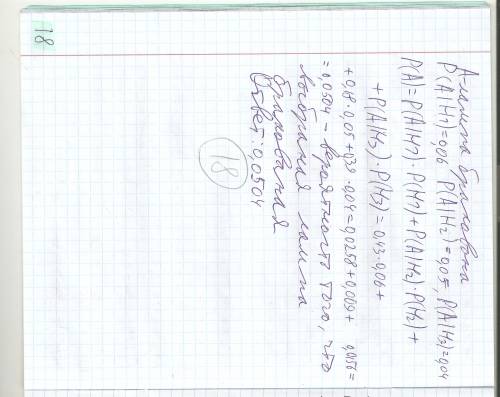 А-лампа бракована
P(A|H1)=0,06 P(A|H2)=0,05, P(A|H3)=0,04
P(A)=P(A|H1)·P(H1)+P(A|H2)·P(H2)+
+P(A|H3)·P(H3)=0,43·0,06+
+0,18·0,05+0,39·0,04=0,0258+0,009+0,0156=
=0,0504 – вероятность того, что
выбранная лампа
бракованая
Ответ: 0,0504
18
18